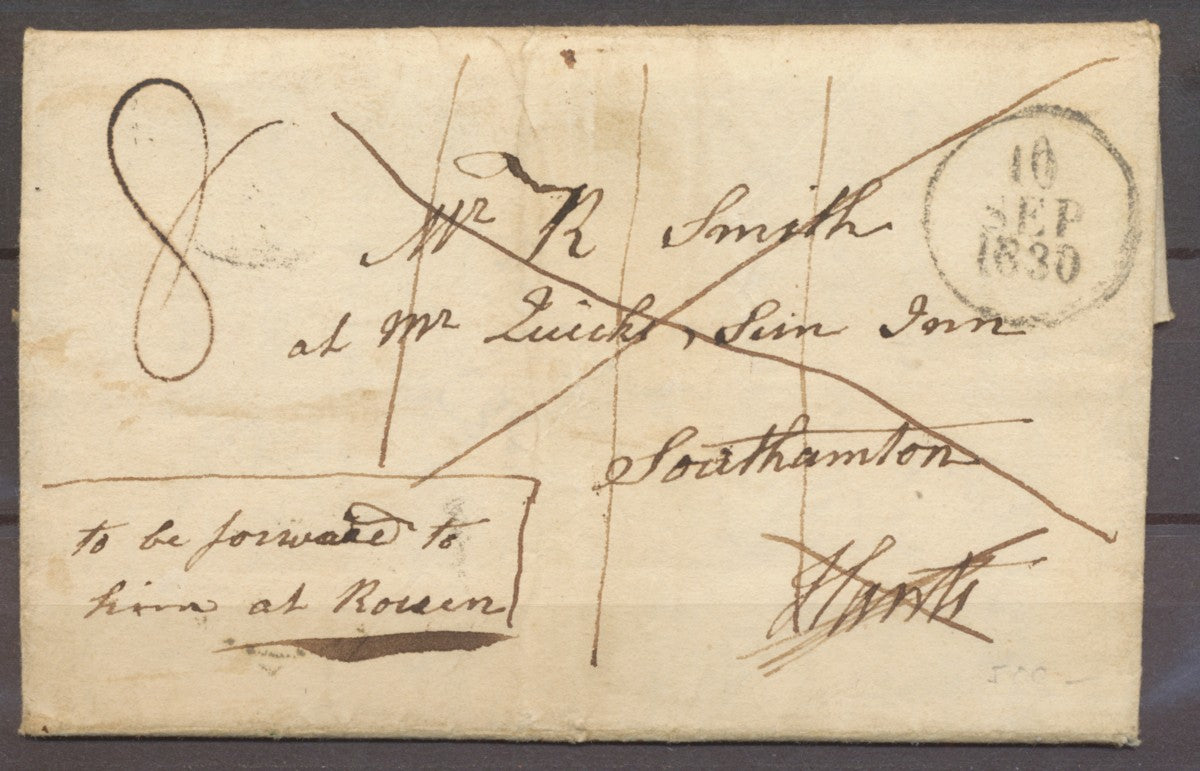 8
10
SEP
1830
Mr R Smith
at Mr Quicks, Sun Inn
Southamton
Hants
to be forward to
him at Rouen